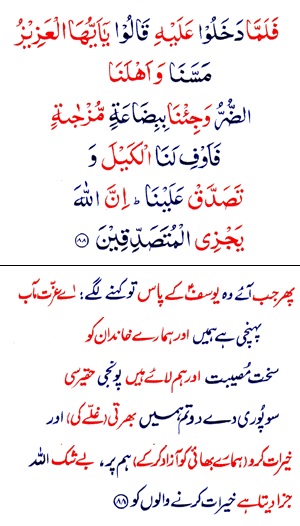 فَلَمَّا دَخَلُوْا عَلَيْهِ قَالُوْا يٰۤاَيُّهَا الْعَزِيْزُ
مَسَّنَا وَ اَهْلَنَا
الضُّرُّ وَجِئْنَا بِبِضَاعَةٍ مُّزْجٰىةٍ
فَاَوْفِ لَنَا الْكَيْلَ وَ
تَصَدَّقْ عَلَيْنَا ؕ اِنَّ اللّٰهَ
يَجْزِى الْمُتَصَدِّقِيْنَ ﴿۸۸﴾
پھر جب آئے وہ یوسفؑ کے پاس تو کہنے لگے: اے عزّت مآب
پہنچی ہے ہمیں اور ہمارے خاندان کو
سخت مُصیبت اور ہم لائے ہیں پونجی حقیر سی
سو پُوری دے دو تم ہمیں بھرتی (غلّے کی) اور
خیرات کرو (ہمارے بھائی کو آزاد کر کے) ہم پر، بے شک اللہ
جزا دیتا ہے خیرات کرنے والوں کو ﴿۸۸﴾